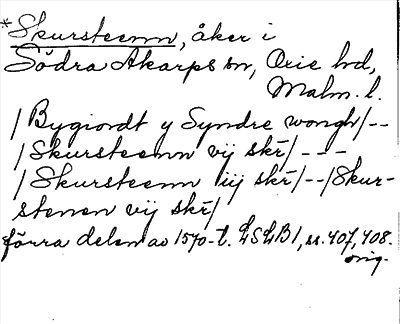 *Skursteenn, åker i
Södra Åkarps sn, Oxie hd,
Malm. l.
/Bygiordt y Syndre wongh/--
/Skursteenn vij skr/---
/Skursteenn iij skr/--/Skur-
stenen vij skr/
förra delen av 1570-t. LSLB1, ss. 407, 408.
orig.